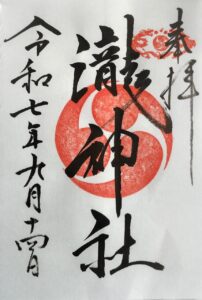 奉拝
瀧神社
令和七年九月十四日